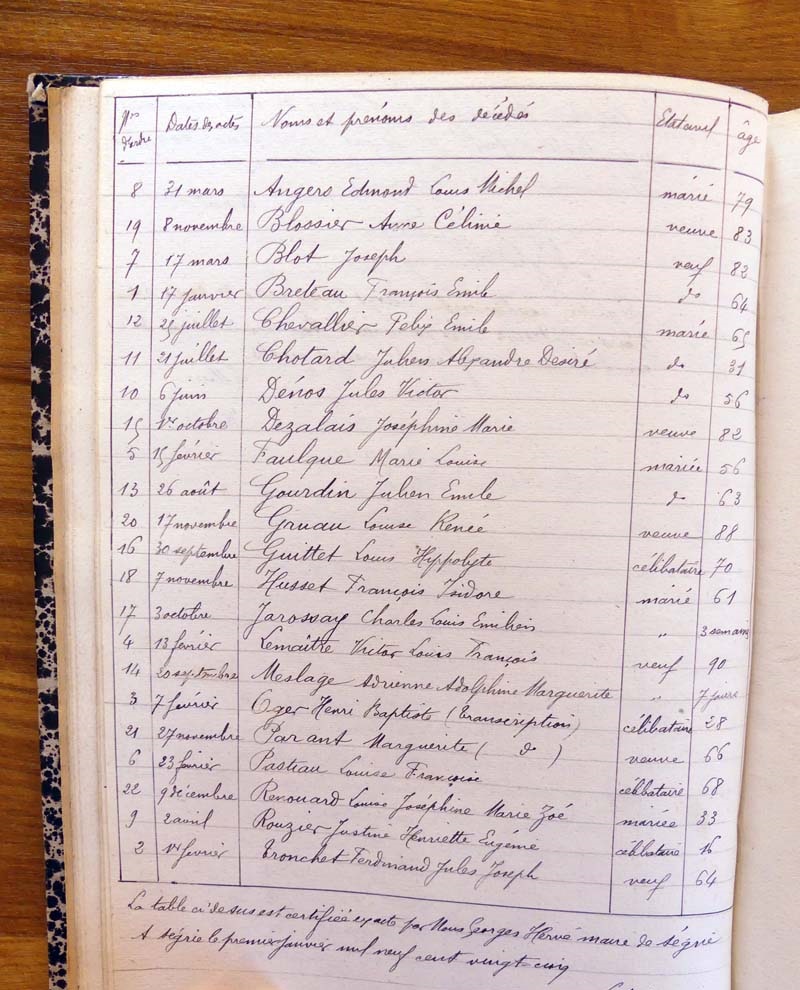 Nos d'ordre Dates des actes Noms et prénoms des décédés Etat civil âge
8 31 mars Angers Edmond Louis Michel marié 79
19 8 novembre Blossier Anne Célinie veuve 83
7 17 mars Blot Joseph veuf 82
1 17 janvier Breteau François Emile do 64
12 25 juillet Chevallier Felix Emile marié 65
11 21 juillet Chotard Julien Alexandre Desiré do 31
10 6 juin Dénos Jules Victor do 56
15 1er octobre Dezalais Joséphine Marie veuve 82
5 15 février Faulque Marie Louise mariée 56
13 26 août Gourdin Julien Emile do 63
20 17 novembre Gruau Louise Renée veuve 88
16 30 septembre Guittet Louis Hyppolyte célibataire 70
18 7 novembre Husset François Isidore marié 61
17 3 octobre Jarossay Charles Louis Emilien " 3 semaines
4 13 février Lemaître Victor Louis François veuf 90
14 20 septembre Meslage Adrienne Adolphine Marguerite " 7 jours
3 7 février Oger Henri Baptiste (transcription) célibataire 28
21 27 novembre Parant Marguerite ( do ) veuve 66
6 23 février Pasteau Louise Françoise célibataire 68
22 9 décembre Renouard Louise Joséphine Marie Zoé mariée 33
9 2 avril Rouzier Justine Henriette Eugénie célibataire 16
2 1er février Tronchet Ferdinand Jules Joseph veuf 64
La table ci-dessus est certifiée exacte par Nous Georges Hervé maire de Ségrie
A Ségrie le premier janvier mil neuf cent vingt-cinq